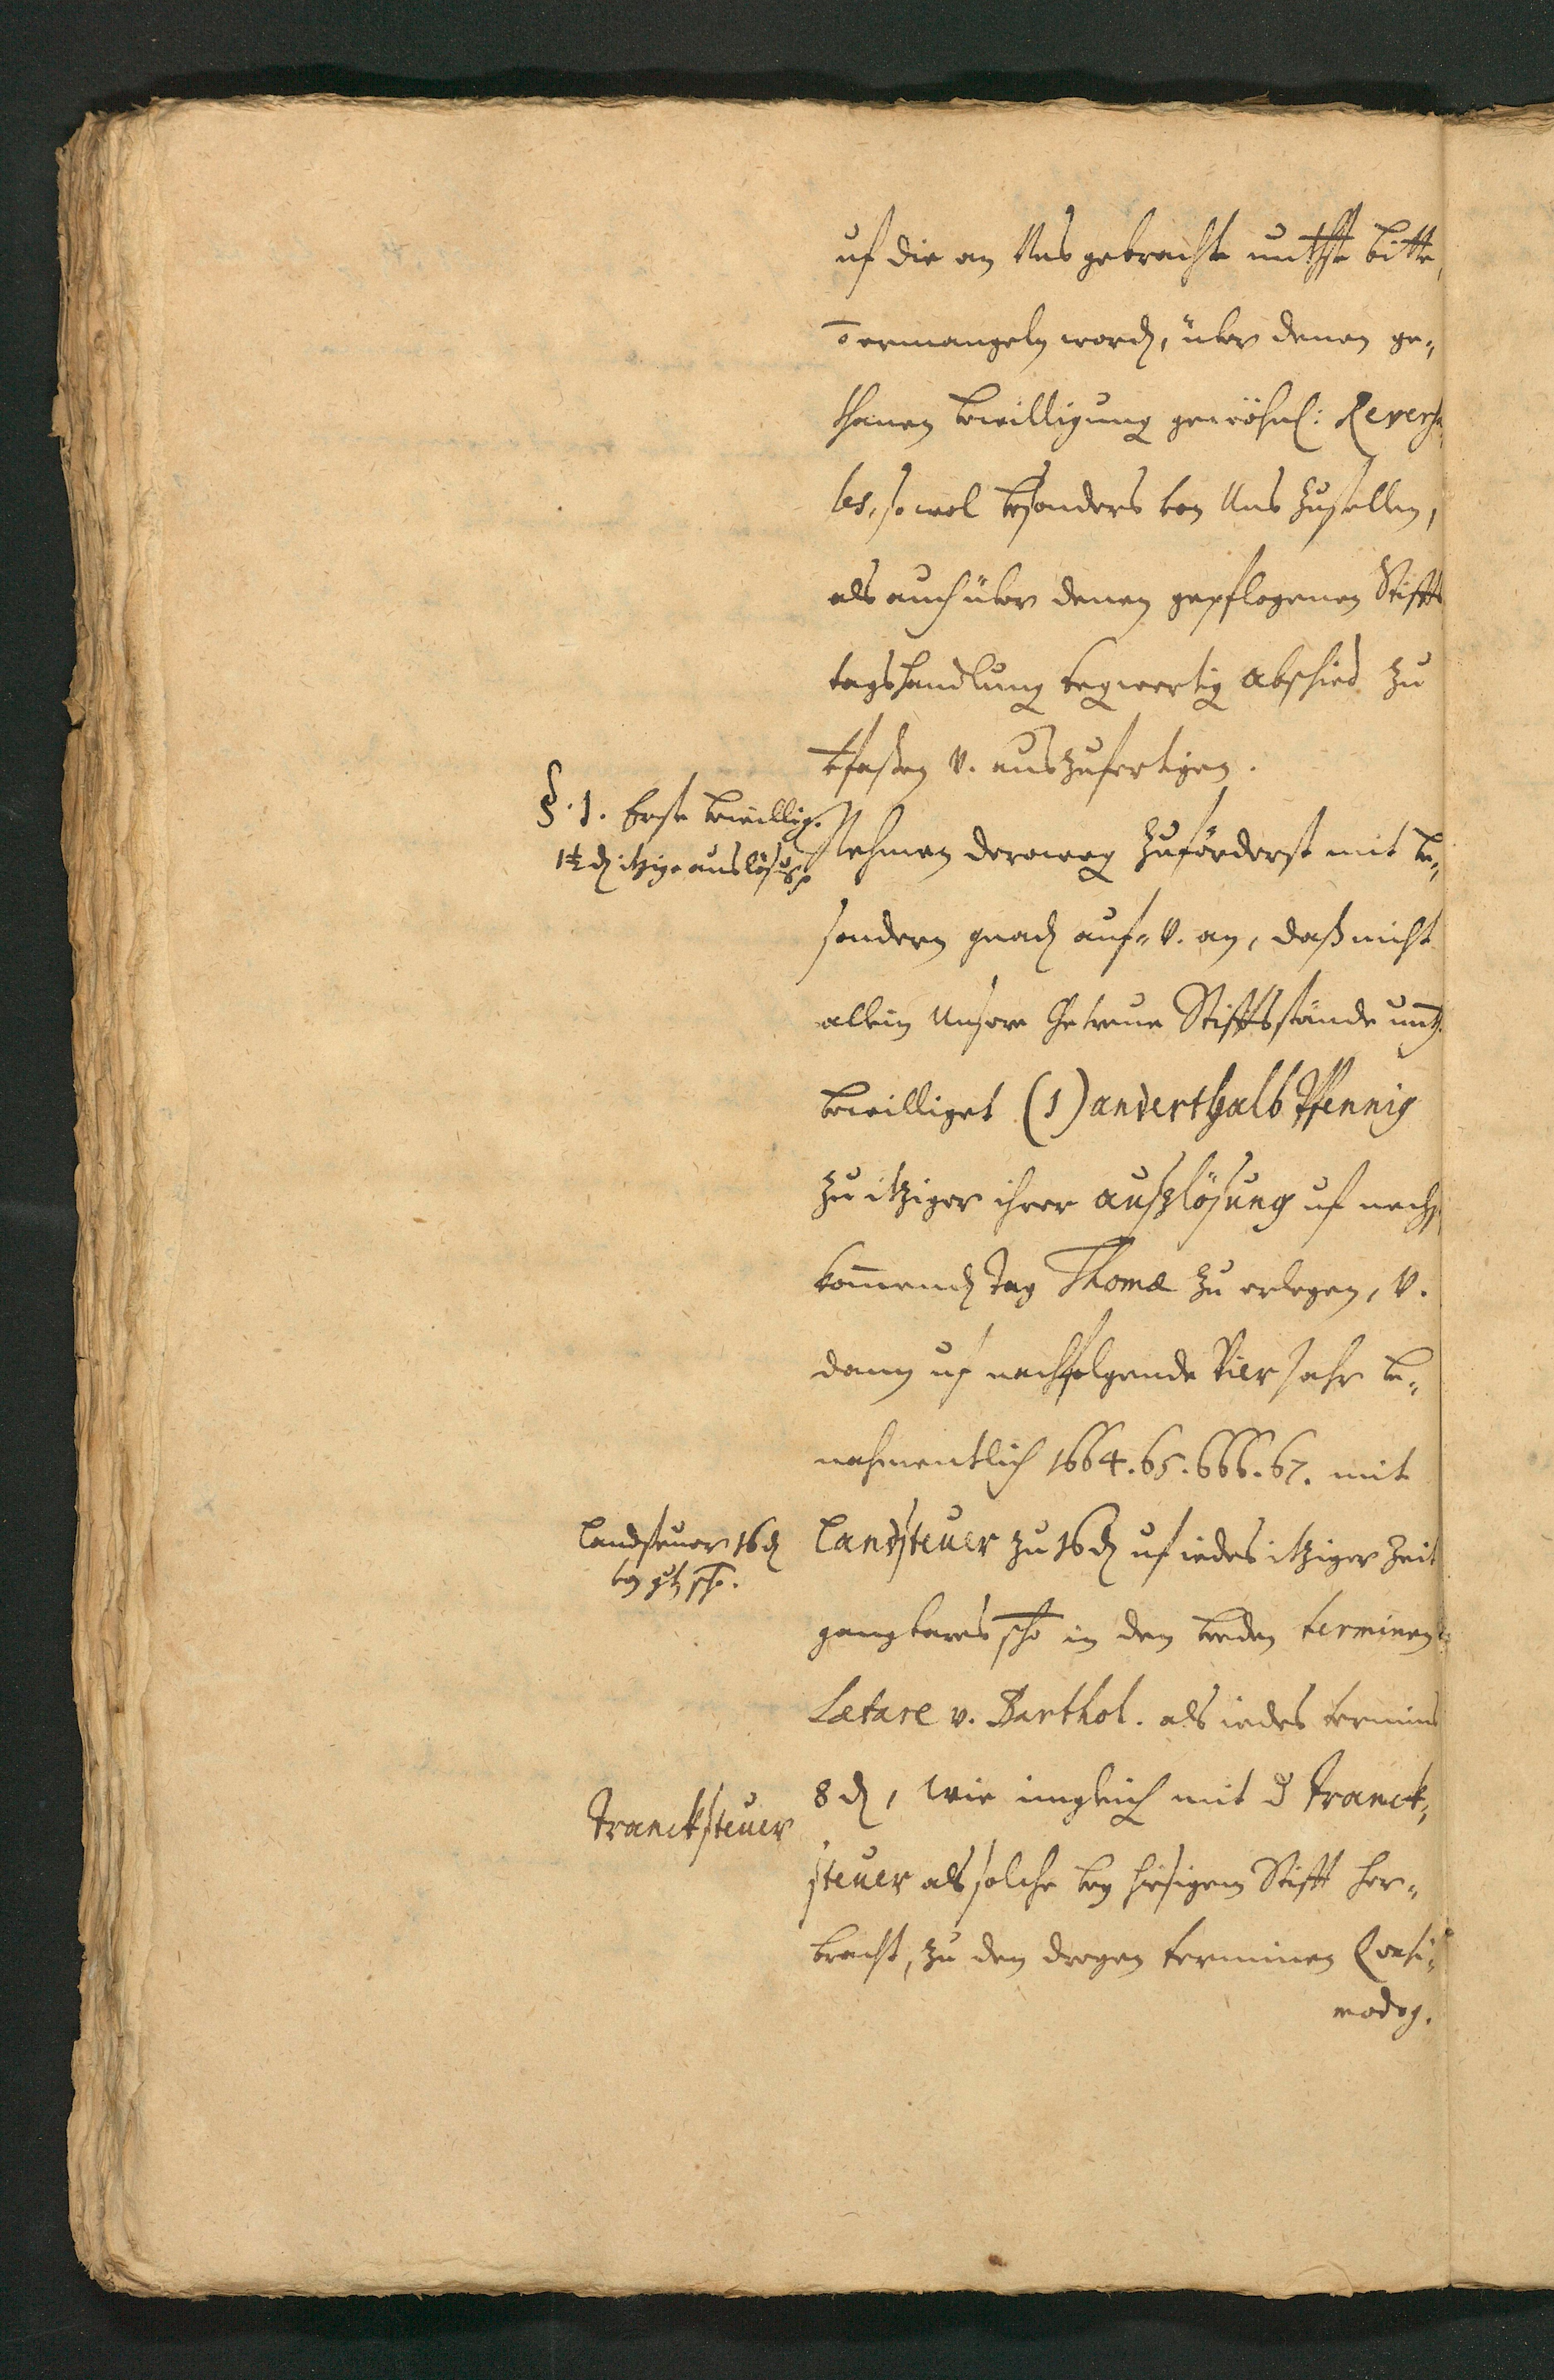 uf die an Uns gebrachte unthste bitte,
ō ermangeln word, über denen ge-
thanen bewilligung gewöhnl: Reversa-
les, so wol besonders von Uns zustellen,
als auch über denen gepflogenen Stiffts
tagshandlung gegenwertig abschied zu
vfaßen v. auszufertigen.
§. 1. Erste bewillig.
1½ ₰ itzige auslösūg
Nehmen deroweg zuförderst mit be-
sondern gnad auf- v. an, daß nicht
allein Unsere Getreue Stifftsstände unth.
bewilliget (1) anderthalb Pfennig
zu itziger ihrer auszlösung uf nechst
kom̄end Tag Thomæ zu erlegen, v.
dann uf nachfolgende Vier Jahr be-
nahmentlich 1664. 65. 666. 67. mit
Landsteuer 16 ₰
Landsteuer zu 16 ₰ uf iedes itziger Zeit
gangbares ßo in den beeden terminen
Lætare v. Barthol. als iedes termins
Trancksteuer
8 ₰, wie imgleich mit d Tranck-
steuer als solche bey hiesigem Stifft her-
bracht, zu den dreyen terminen Quasi-
modog.